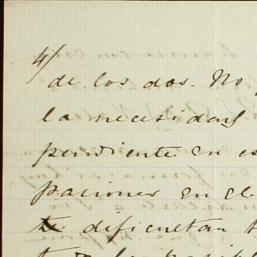 4/
de los dos. No
la necesidad
pendiente en es
paciones en el
dificultan